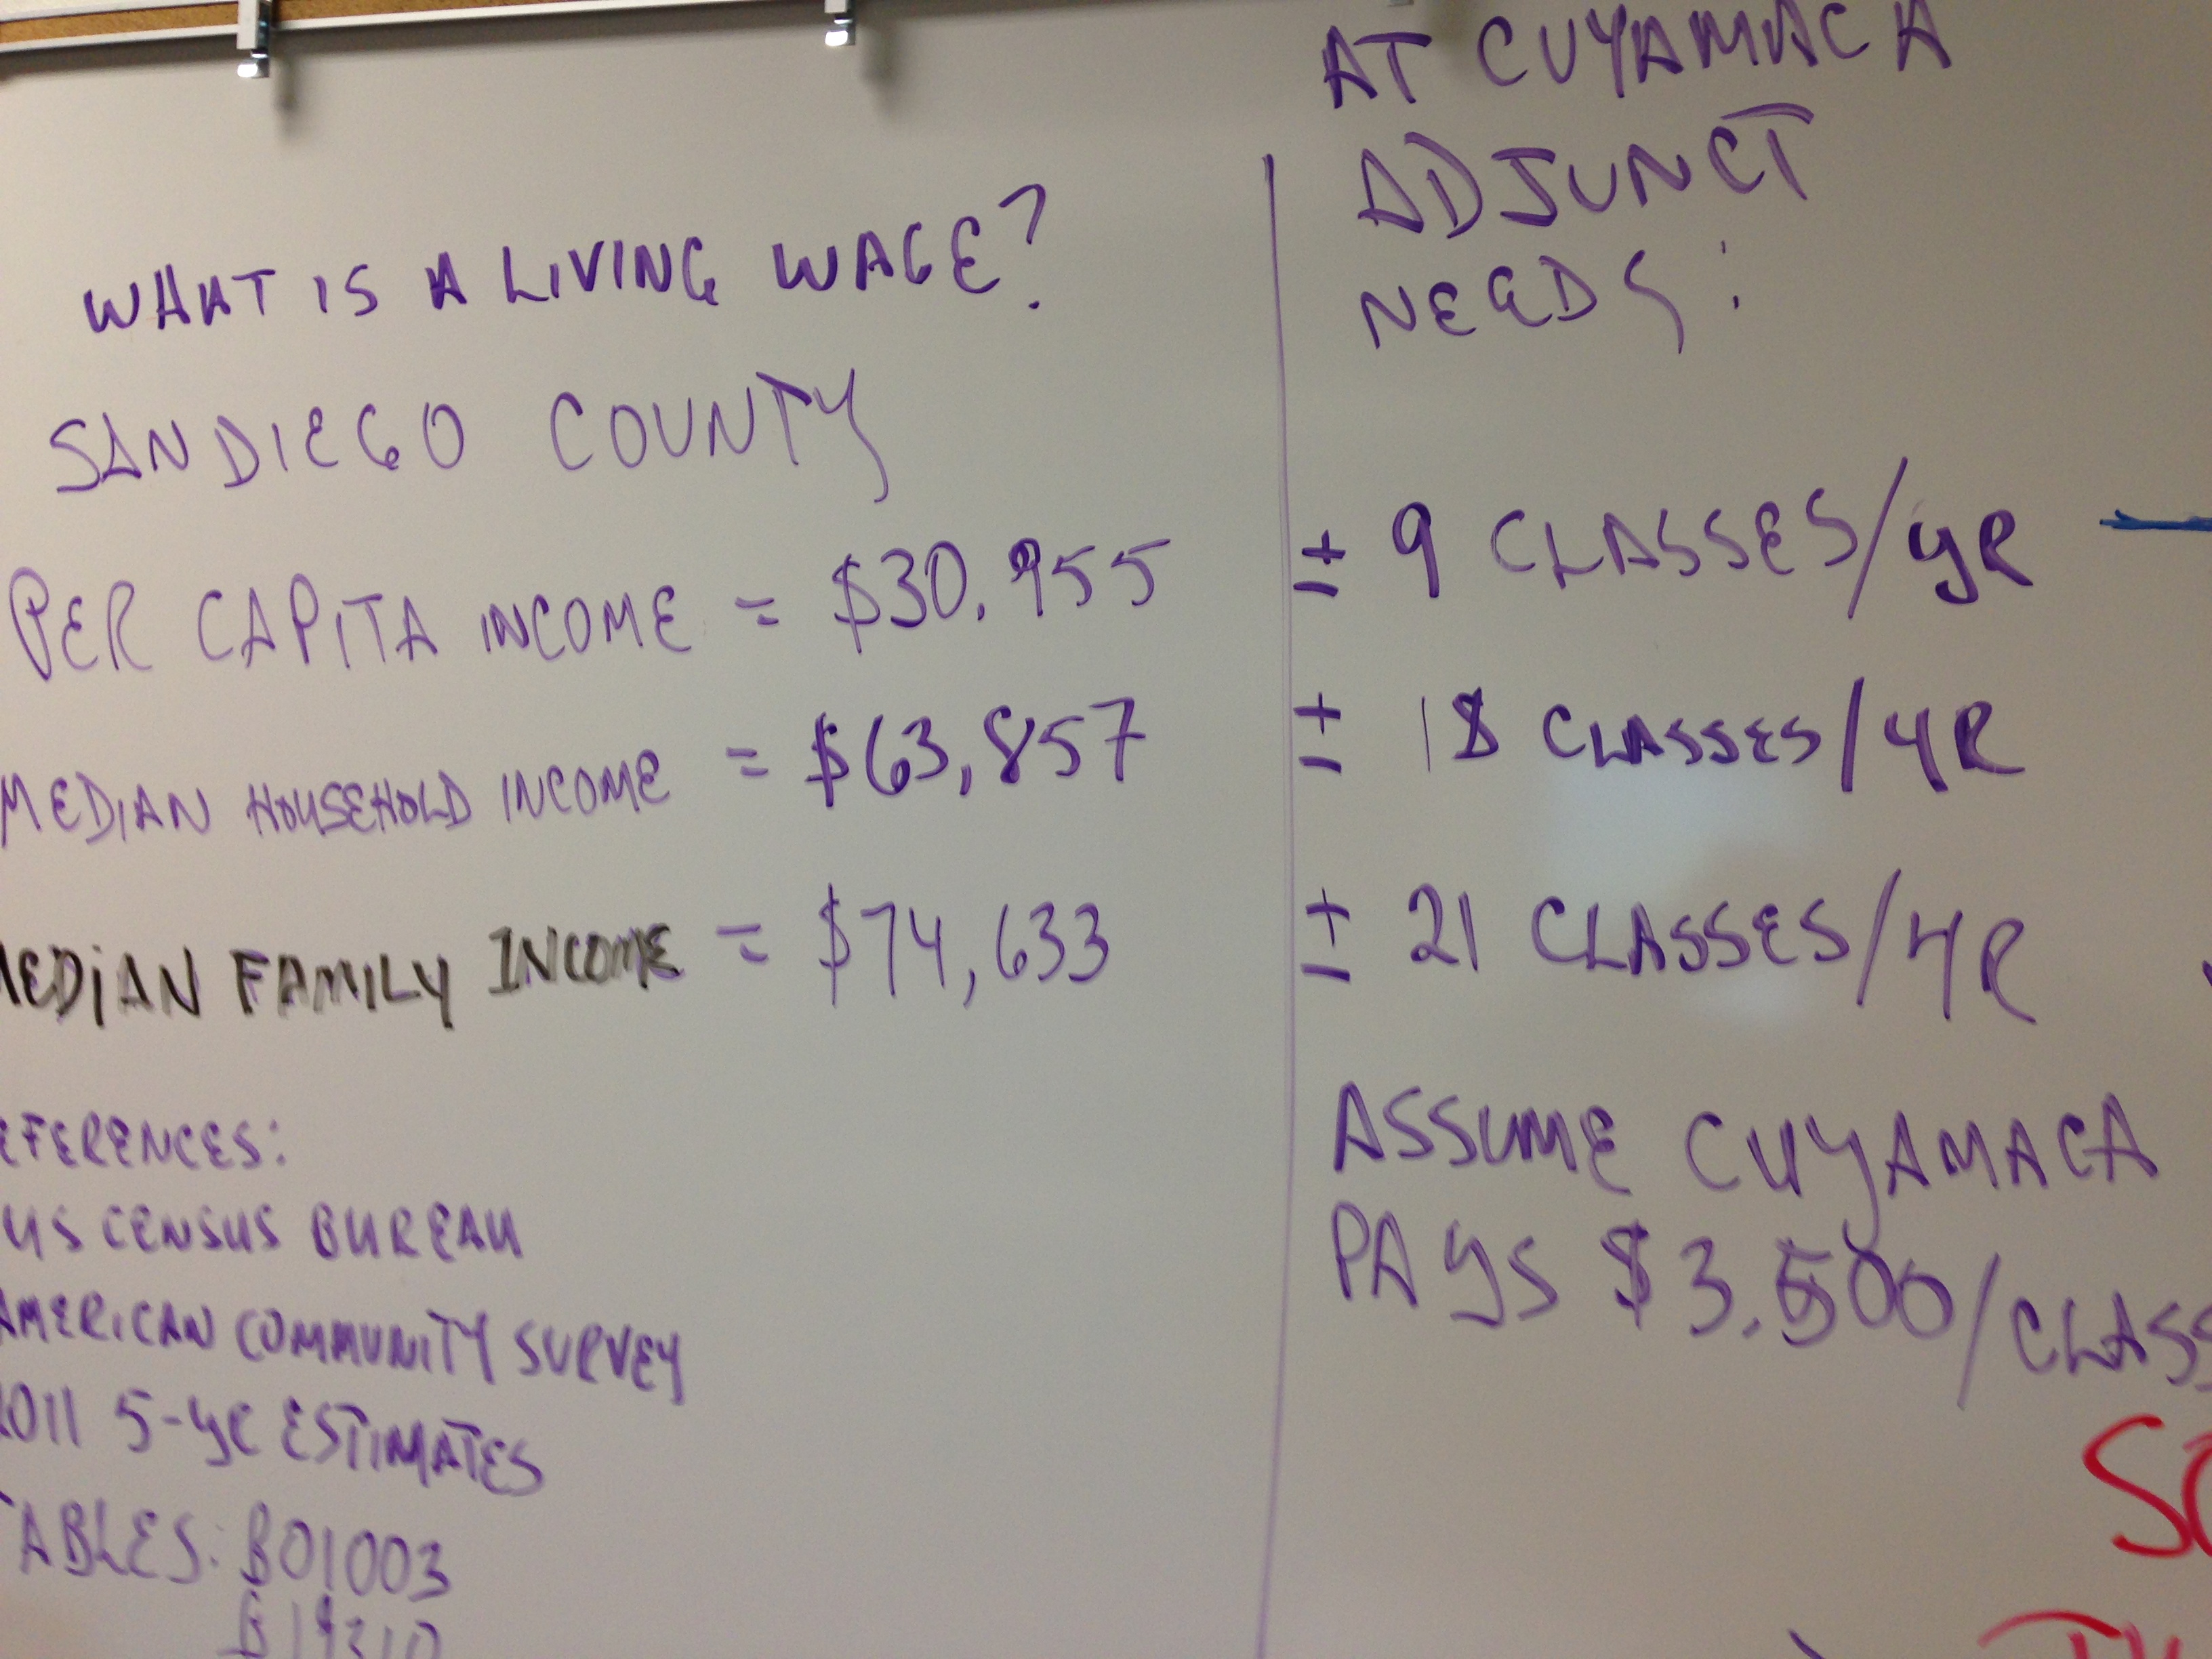 WHAT IS A LIVING WAGE?
SAN DIEGO COUNTY
PER CAPITA INCOME = $30,955
MEDIAN HOUSEHOLD INCOME = $63,857
MEDIAN FAMILY INCOME = $74,633
EFERENCES:
US CENSUS BUREAU
AMERICAN COMMUNITY SURVEY
2011 5-YR ESTIMATES
TABLES: B01003
AT CUYAMACA
ADJUNCT
NEEDS:
± 9 CLASSES/YR
± 18 CLASSES/YR
± 21 CLASSES/YR
ASSUME CUYAMACA
PAYS $3,500/CLASS